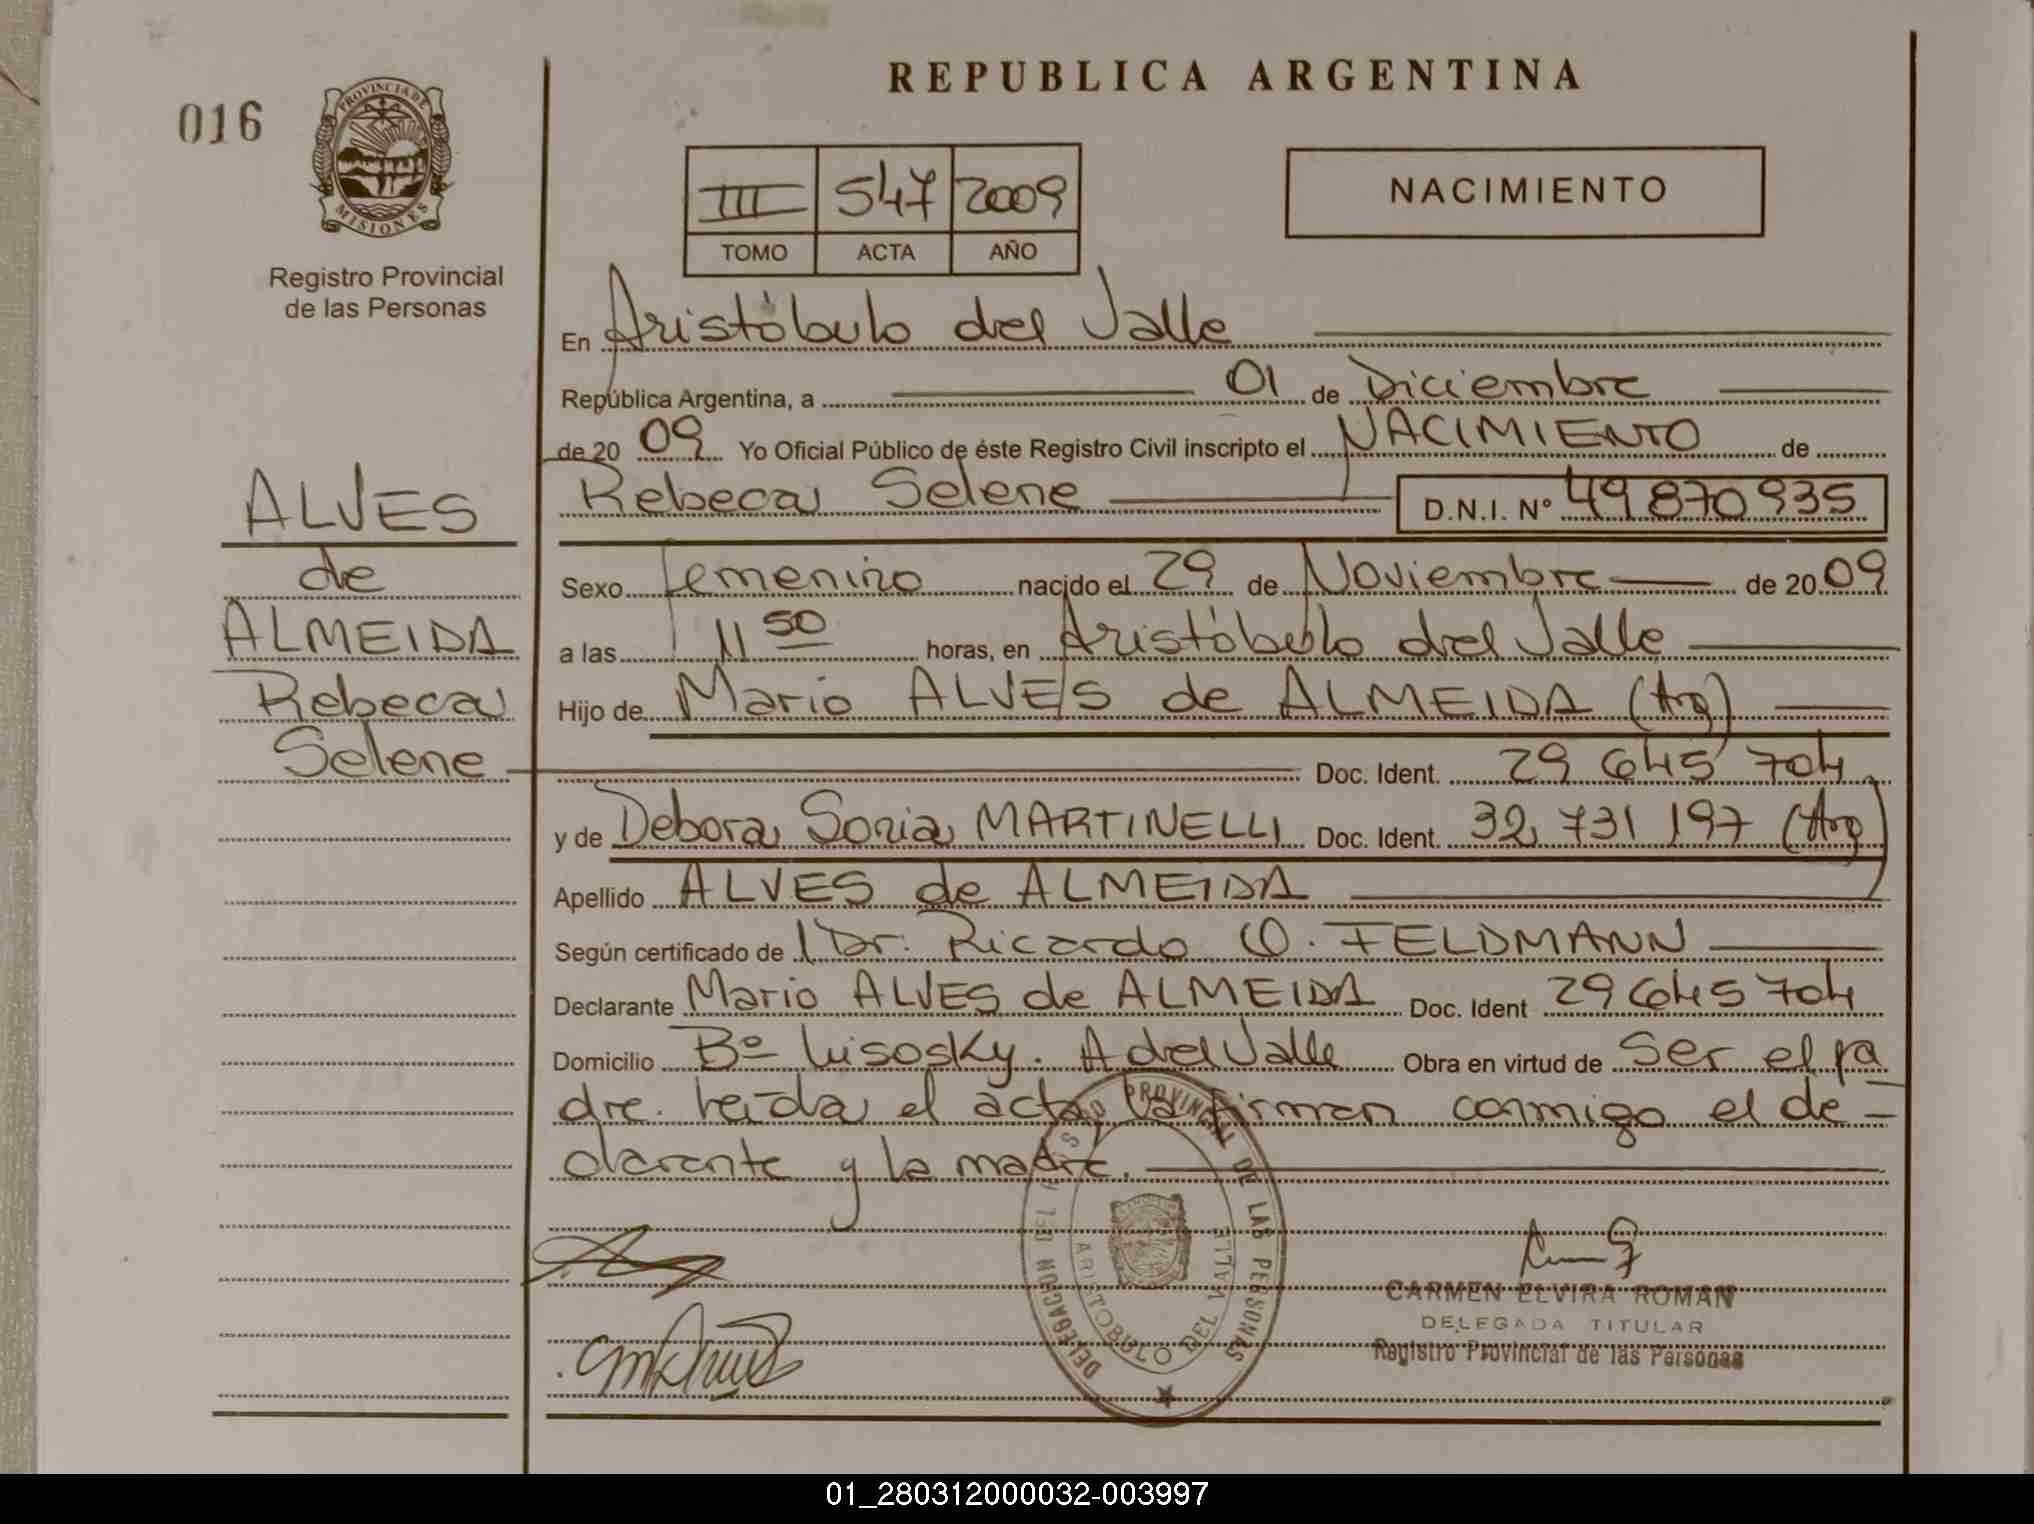 016
PROVINCIA DE
MISIONES
Registro Provincial
de las Personas
REPUBLICA ARGENTINA
III 547 2009
TOMO ACTA AÑO
NACIMIENTO
En Aristóbulo del Valle
República Argentina, a 01 de Diciembre
de 2009 Yo Oficial Público de éste Registro Civil inscripto el NACIMIENTO de
Rebeca Selene D.N.I. Nº 49870935
ALVES
de
ALMEIDA
Rebeca
Selene
Sexo femenino nacido el 29 de Noviembre de 2009
a las 11 50 horas, en Aristóbulo del Valle
Hijo de Mario ALVES de ALMEIDA (Arg)
Doc. Ident. 29 645 704
y de Debora Sonia MARTINELLI Doc. Ident. 32 731 197 (Arg)
Apellido ALVES de ALMEIDA
Según certificado de Dr. Ricardo O. FELDMANN
Declarante Mario ALVES de ALMEIDA Doc. Ident 29645704
Domicilio Bº Luisosky. A del Valle Obra en virtud de Ser el pa
dre. Leida el acta la firman conmigo el de-
clarante y la madre.
DELEGACION DEL REGISTRO PROVINCIAL DE LAS PERSONAS
ARISTOBULO DEL VALLE
CARMEN ELVIRA ROMAN
DELEGADA TITULAR
Registro Provincial de las Personas
01_280312000032-003997